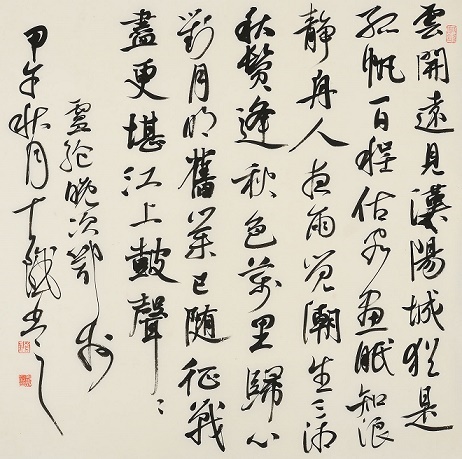 雲開遠見漢陽城猶是
孤帆一日程估客晝眠知浪
靜舟人夜雨覺潮生三湘
秋鬢逢秋色萬里歸心
對月明舊業已隨征戰
盡更堪江上鼓聲
盧綸晚次鄂州
甲午秋月十書之